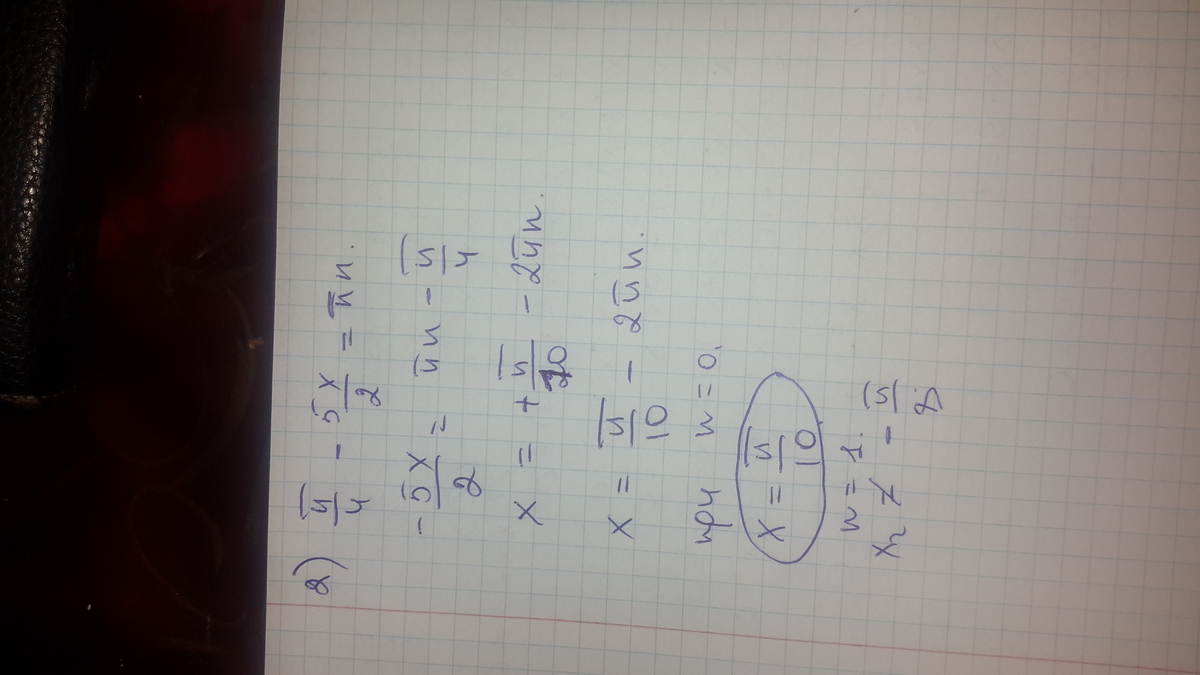 2) π/4 - 5x/2 = πn.
-5x/2 = πn - π/4
x = + π/10 - 2πn.
x = π/10 - 2πn.
при n = 0.
x = π/10
n = 1.